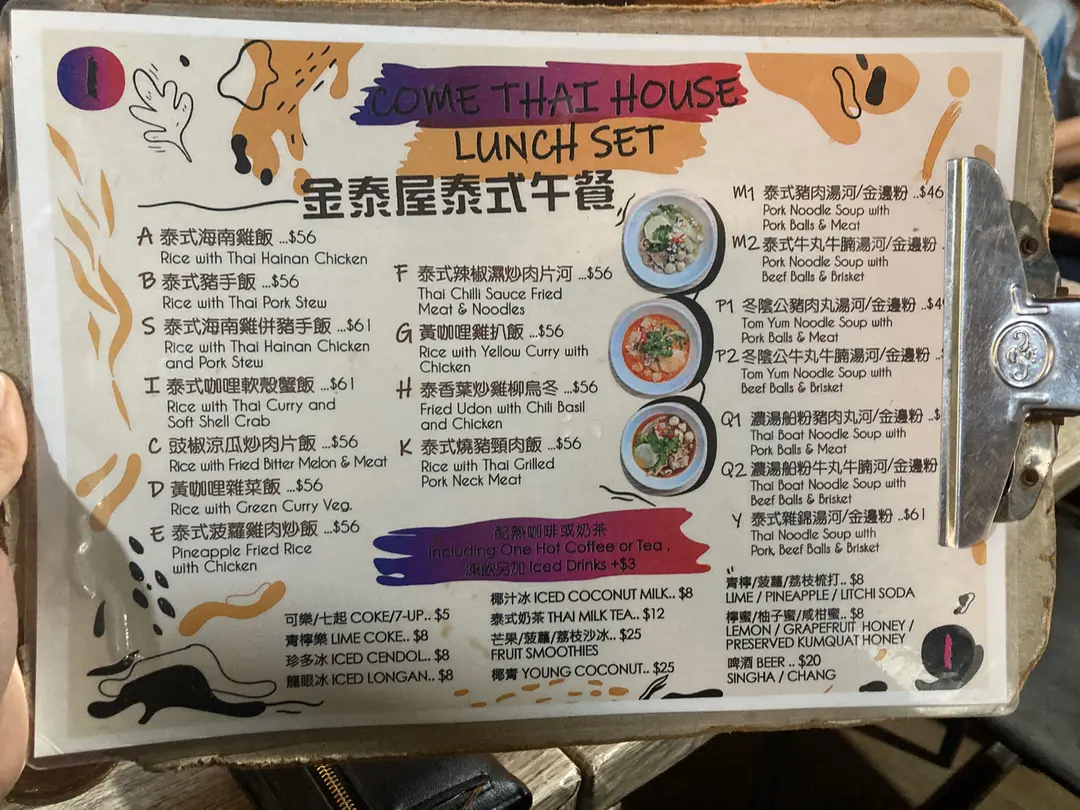 COME THAI HOUSE
LUNCH SET
金泰屋泰式午餐
A 泰式海南雞飯 ...$56
Rice with Thai Hainan Chicken
B 泰式豬手飯 ...$56
Rice with Thai Pork Stew
S 泰式海南雞併豬手飯 ...$61
Rice with Thai Hainan Chicken
and Pork Stew
I 泰式咖哩軟殼蟹飯 ...$61
Rice with Thai Curry and
Soft Shell Crab
C 豉椒涼瓜炒肉片飯 ...$56
Rice with Fried Bitter Melon & Meat
D 黃咖哩雜菜飯 ...$56
Rice with Green Curry Veg.
E 泰式菠蘿雞肉炒飯 ...$56
Pineapple Fried Rice
with Chicken
F 泰式辣椒濕炒肉片河 ...$56
Thai Chilli Sauce Fried
Meat & Noodles
G 黃咖哩雞扒飯 ...$56
Rice with Yellow Curry with
Chicken
H 泰香葉炒雞柳烏冬 ...$56
Fried Udon with Chili Basil
and Chicken
K 泰式燒豬頸肉飯 ...$56
Rice with Thai Grilled
Pork Neck Meat
M1 泰式豬肉湯河/金邊粉 ..$46
Pork Noodle Soup with
Pork Balls & Meat
M2 泰式牛丸牛腩湯河/金邊粉 .
Pork Noodle Soup with
Beef Balls & Brisket
P1 冬陰公豬肉丸湯河/金邊粉 ..$4
Tom Yum Noodle Soup with
Pork Balls & Meat
P2 冬陰公牛丸牛腩湯河/金邊粉 ..
Tom Yum Noodle Soup with
Beef Balls & Brisket
Q1 濃湯船粉豬肉丸河/金邊粉 ..$
Thai Boat Noodle Soup with
Pork Balls & Meat
Q2 濃湯船粉牛丸牛腩河/金邊粉
Thai Boat Noodle Soup with
Beef Balls & Brisket
Y 泰式雜錦湯河/金邊粉 ..$61
Thai Noodle Soup with
Pork, Beef Balls & Brisket
配熱咖啡或奶茶
Including One Hot Coffee or Tea ,
凍飲另加 Iced Drinks +$3
可樂/七起 COKE/7-UP.. $5
青檸樂 LIME COKE.. $8
珍多冰 ICED CENDOL.. $8
龍眼冰 ICED LONGAN.. $8
椰汁冰 ICED COCONUT MILK.. $8
泰式奶茶 THAI MILK TEA.. $12
芒果/菠蘿/荔枝沙冰.. $25
FRUIT SMOOTHIES
椰青 YOUNG COCONUT.. $25
青檸/菠蘿/荔枝梳打.. $8
LIME / PINEAPPLE / LITCHI SODA
檸蜜/柚子蜜/咸柑蜜.. $8
LEMON / GRAPEFRUIT HONEY /
PRESERVED KUMQUAT HONEY
啤酒 BEER .. $20
SINGHA / CHANG